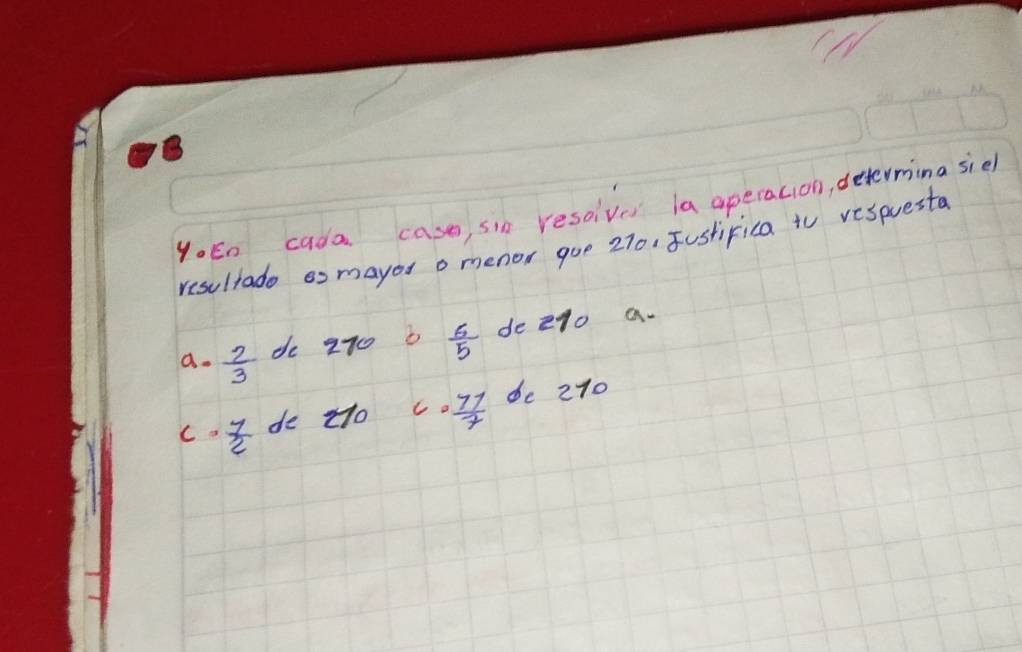 4. En cada caso, sin resolver la operacion, determina si el
resultado es mayor o menor que 210. Justifica tu respuesta
a. 2/3 de 210 b 6/5 de 210 a.
c. 1/2 de 210 c. 11/7 de 210